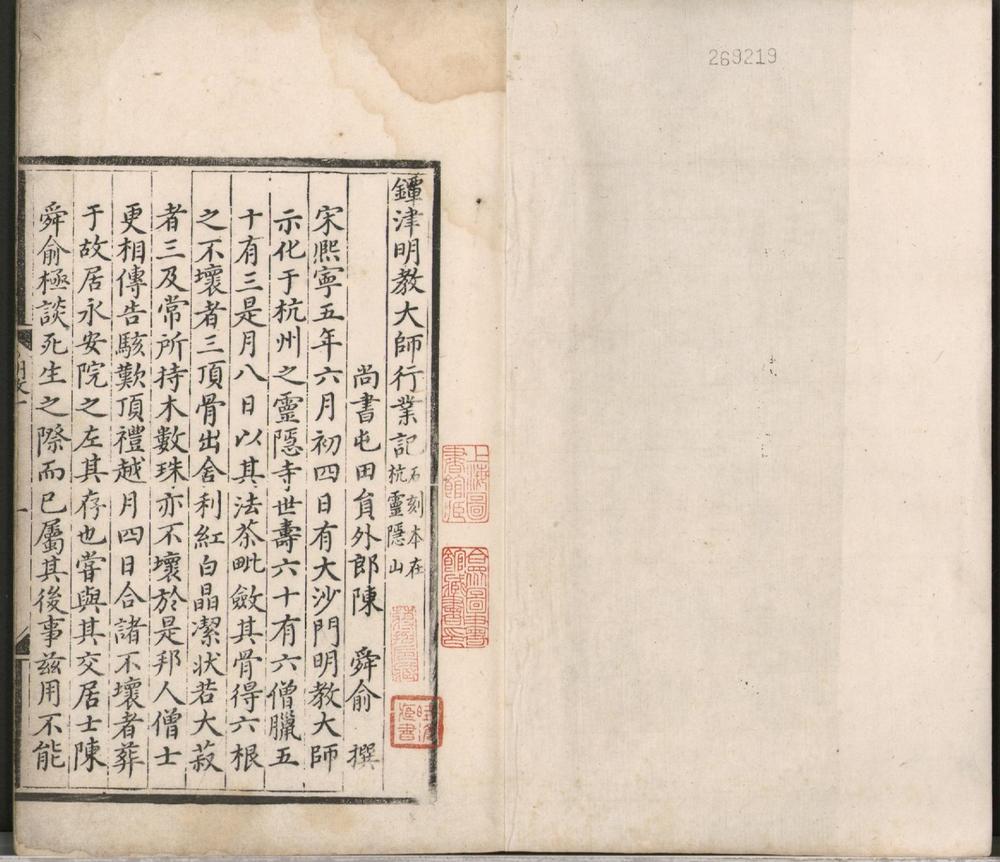 269219
鐔津明教大師行業記石刻本在杭靈隱山
尚書屯田員外郎陳 舜俞 撰
宋熙寧五年六月初四日有大沙門明教大師
示化于杭州之靈隱寺世壽六十有六僧臘五
十有三是月八日以其法茶毗斂其骨得六根
之不壞者三頂骨出舍利紅白晶潔狀若大菽
者三及常所持木數珠亦不壞於是邦人僧士
更相傳告駭歎頂禮越月四日合諸不壞者葬
于故居永安院之左其存也嘗與其交居士陳
舜俞極談死生之際而已屬其後事茲用不能
上海圖書館藏
合眾圖書館藏書印